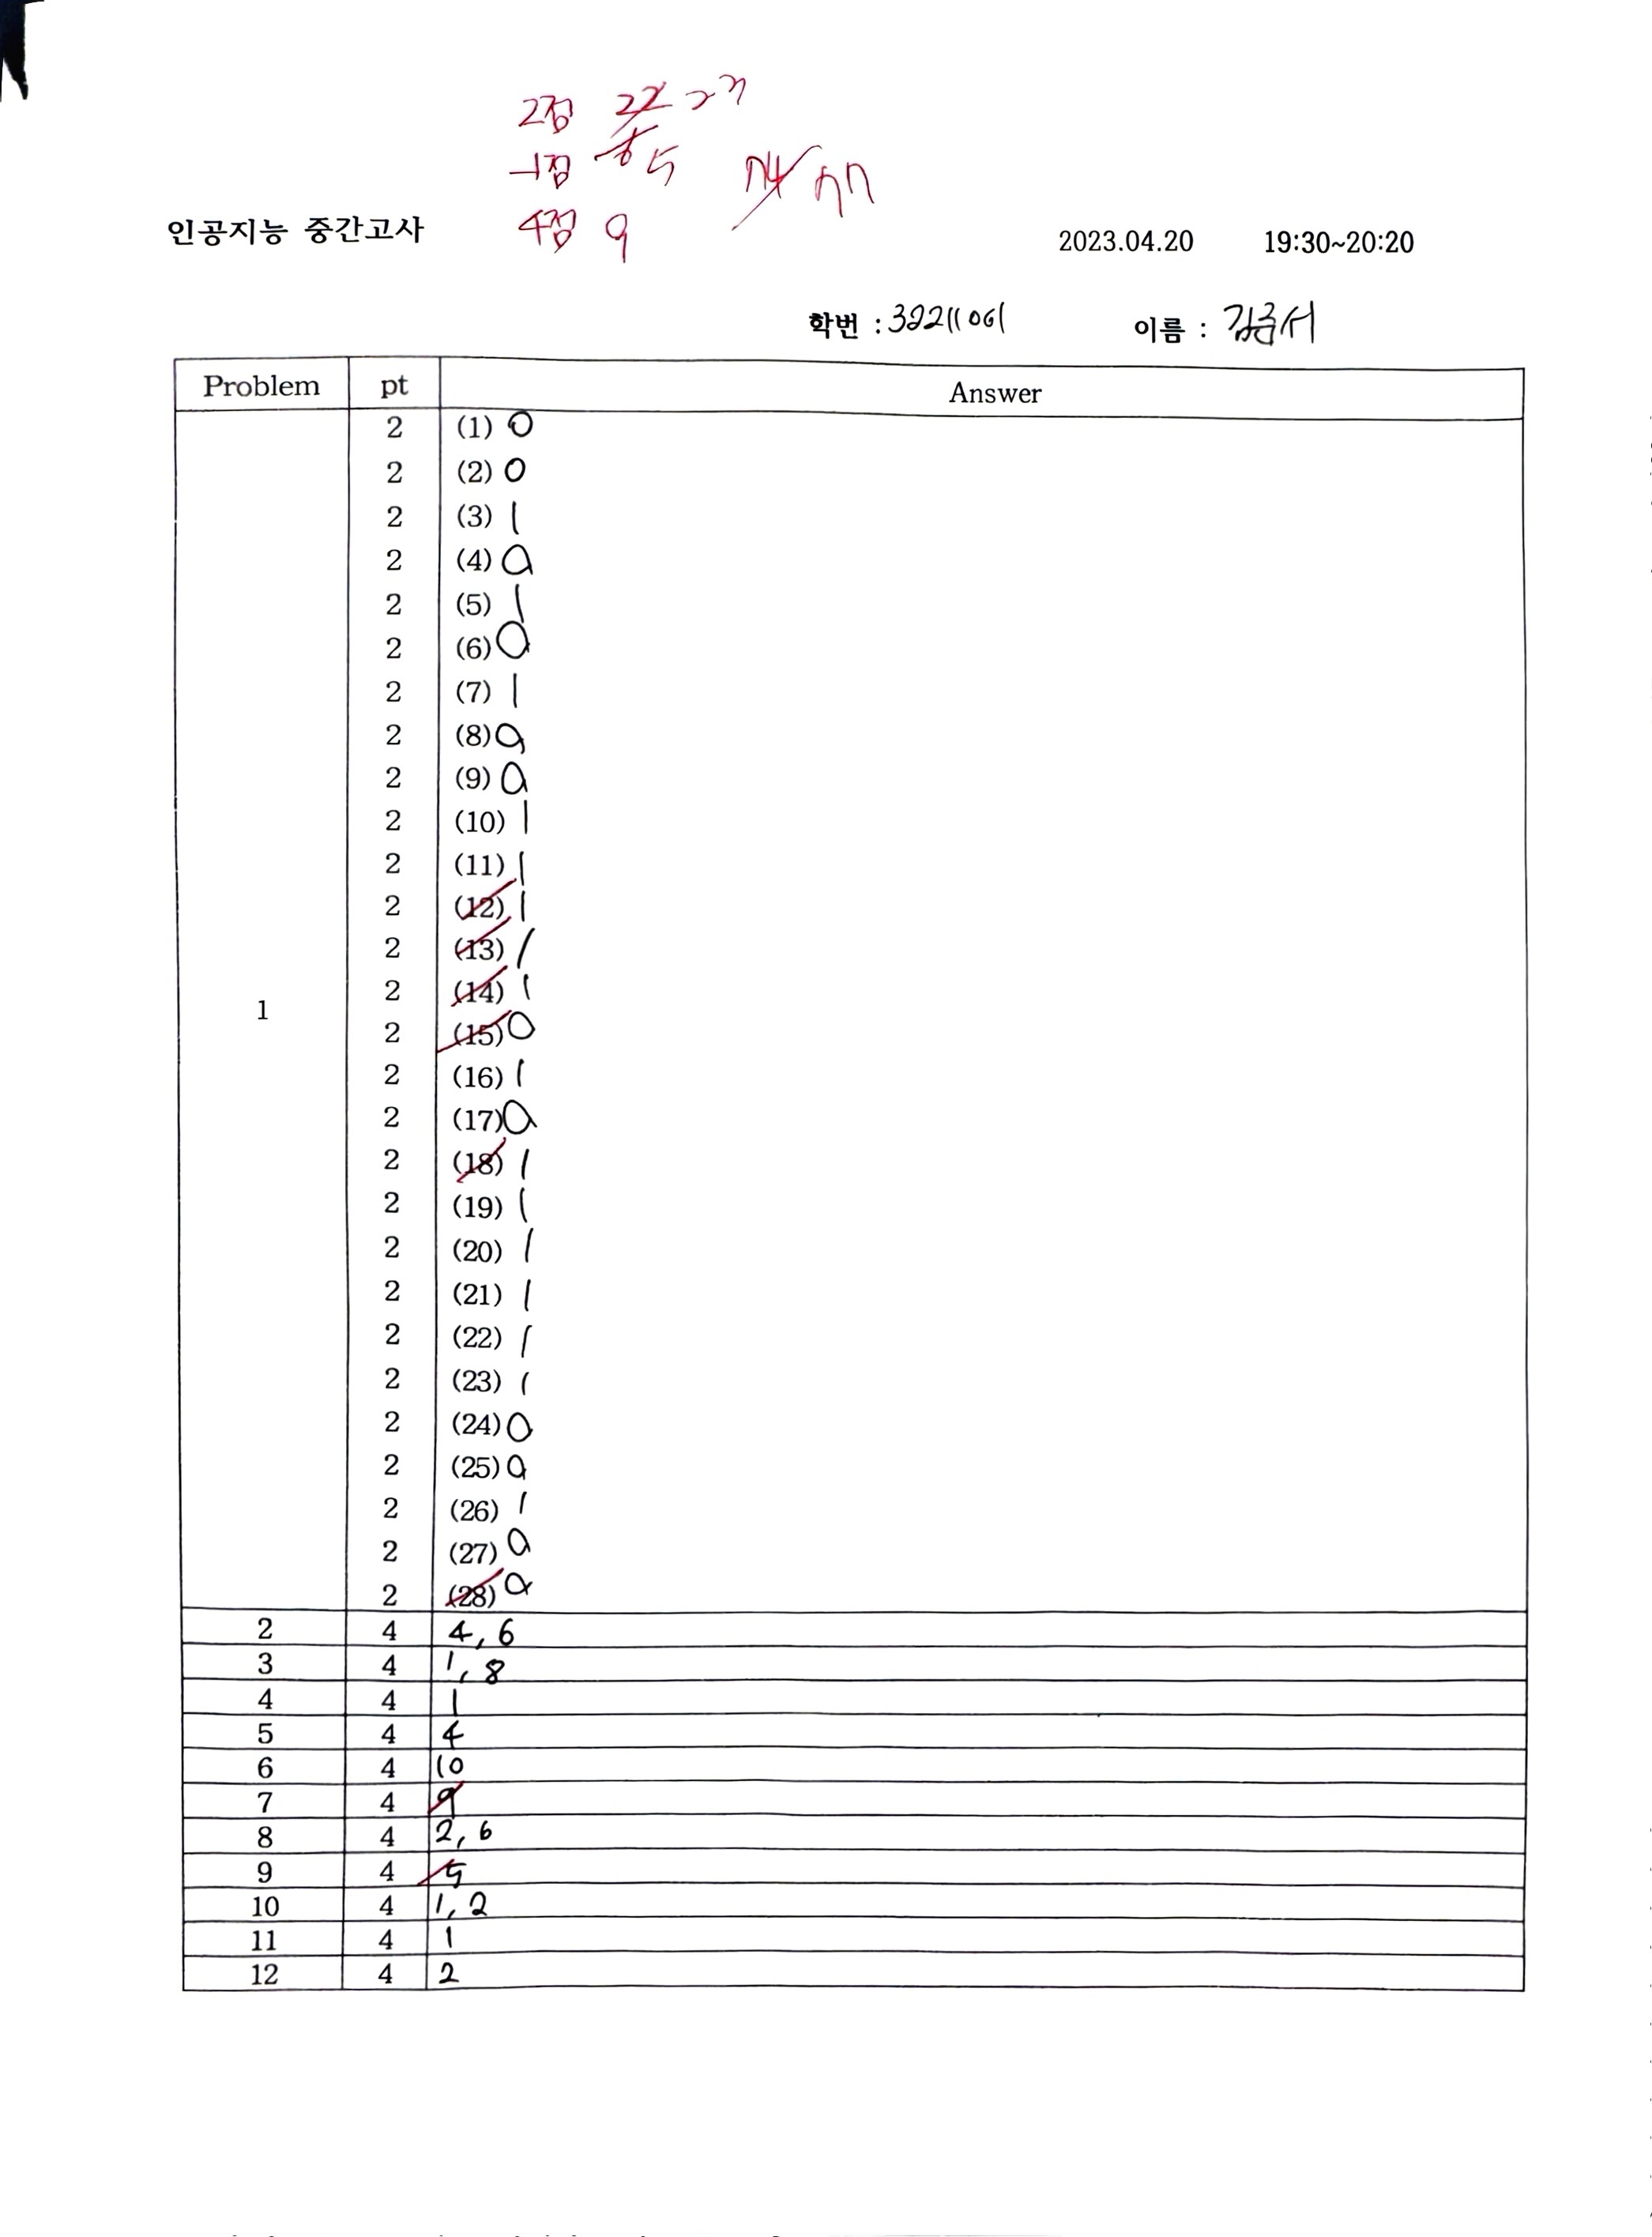 2점 22 23
-1점 6 5 74 77
4점 9
인공지능 중간고사
2023.04.20 19:30~20:20
학번 : 32211061 이름 :
Problem pt Answer
2 (1) 0
2 (2) 0
2 (3) 1
2 (4) 0
2 (5) 1
2 (6) 0
2 (7) 1
2 (8) 0
2 (9) 0
2 (10) 1
2 (11) 1
2 (12) 1
2 (13) 1
2 (14) 1
1
2 (15) 0
2 (16) 1
2 (17) 0
2 (18) 1
2 (19) 1
2 (20) 1
2 (21) 1
2 (22) 1
2 (23) 1
2 (24) 0
2 (25) 0
2 (26) 1
2 (27) 0
2 (28) 0
2 4 4, 6
3 4 1, 8
4 4 1
5 4 4
6 4 10
7 4 9
8 4 2, 6
9 4 5
10 4 1, 2
11 4 1
12 4 2